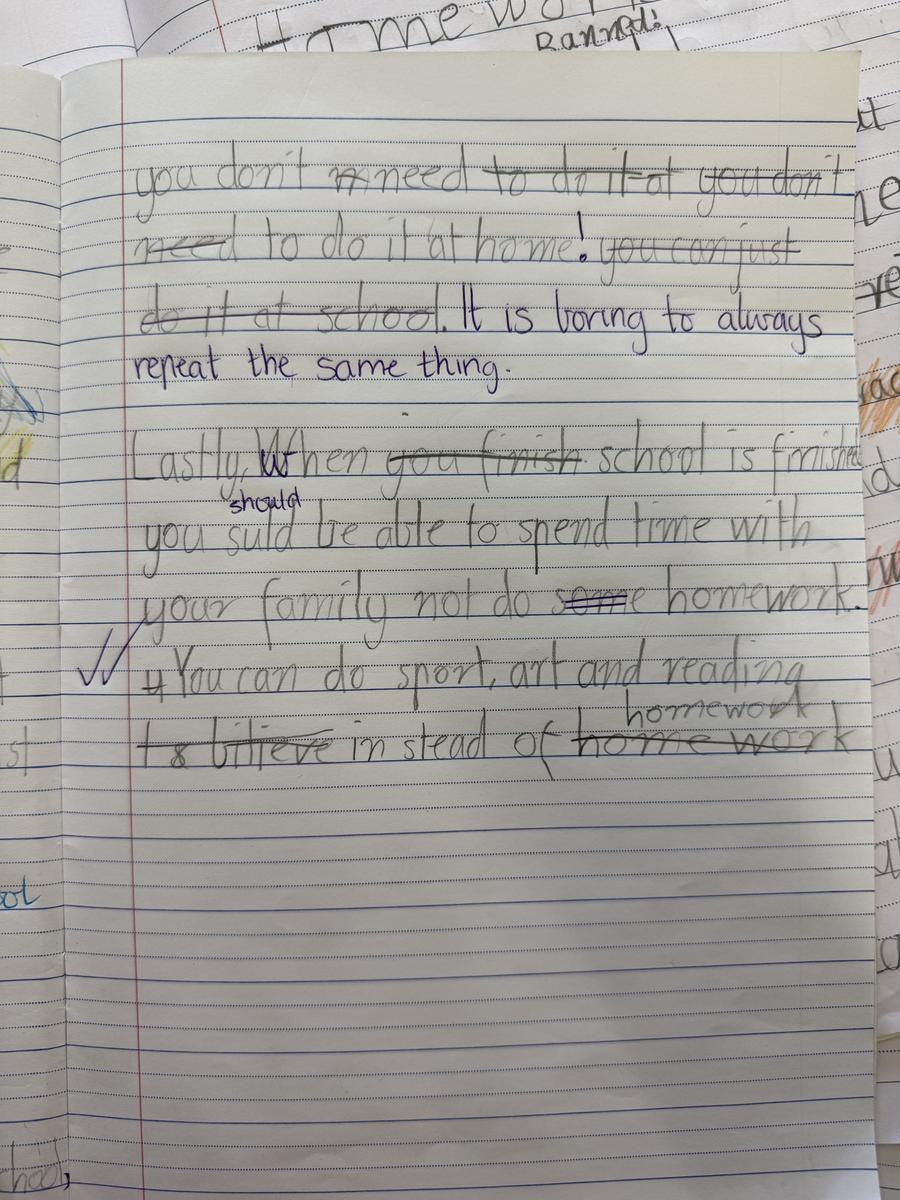 Homewo
Banned!
you don't need to do it at you don't
need to do it at home! you can just
do it at school. It is boring to always
repeat the same thing.
Lastly, When you finish school is finished
should
you suld be able to spend time with
your family not do some homework.
You can do sport, art and reading
homework
I bilieve in stead of home work